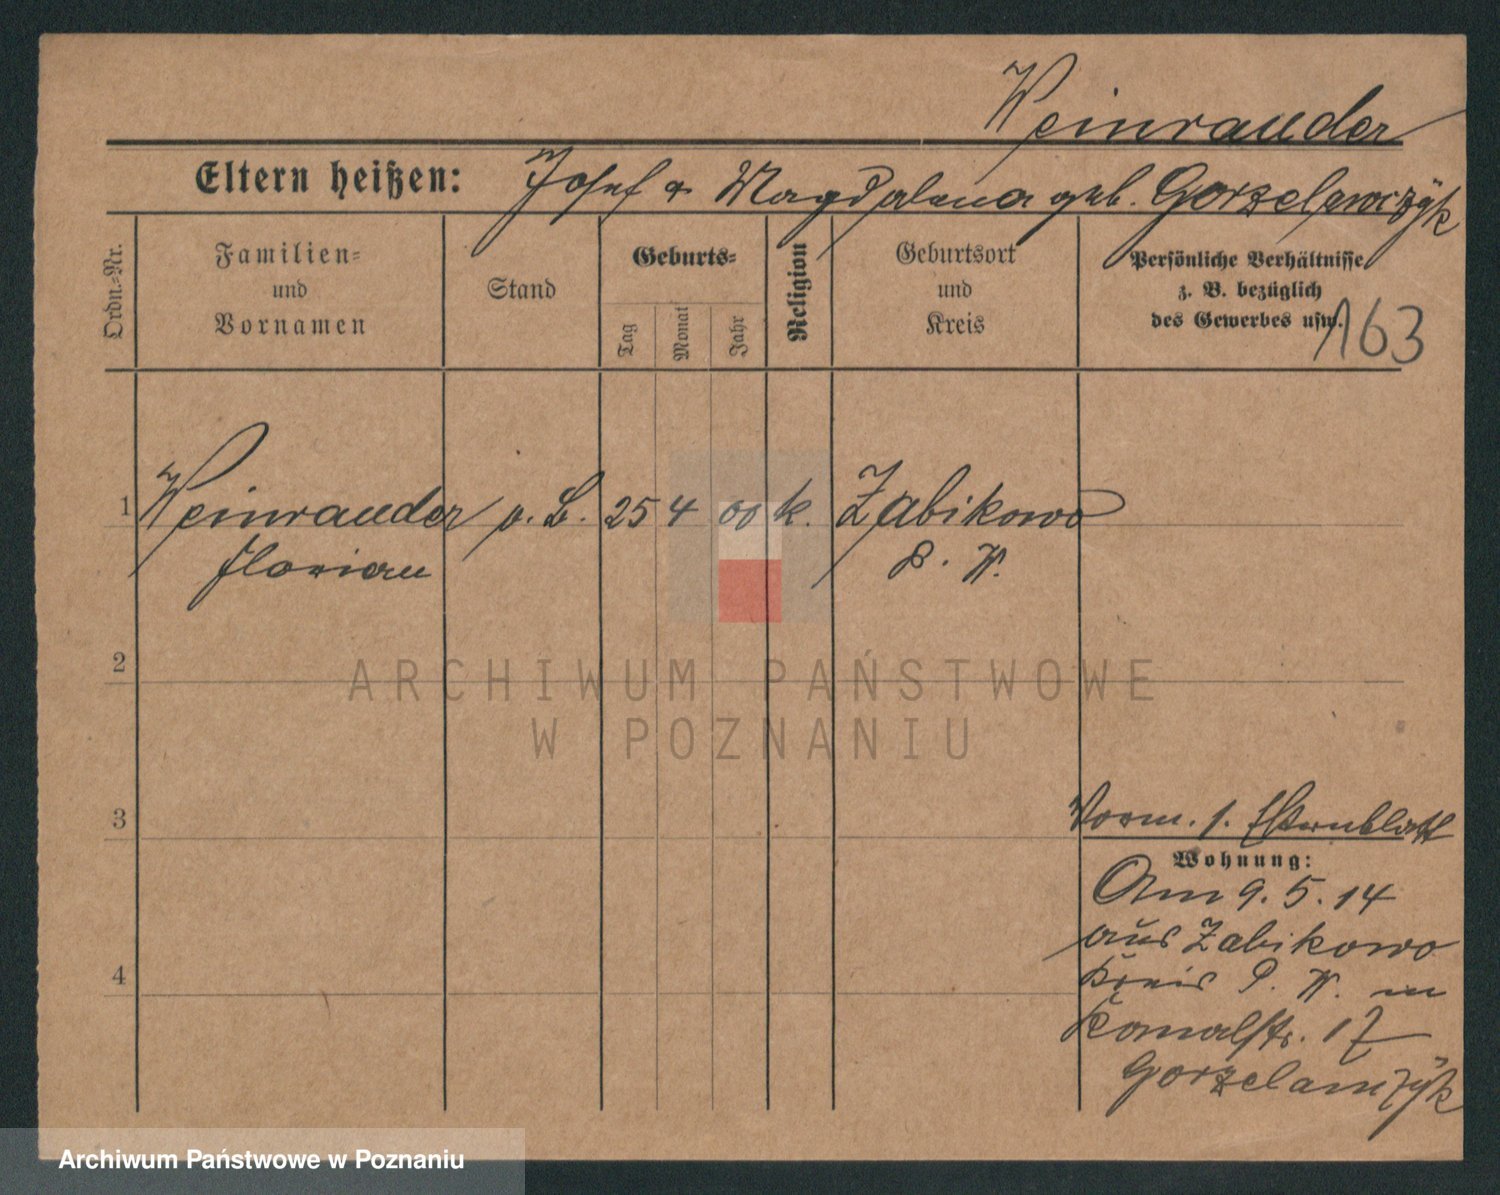 Weinrauder
Eltern heißen: Josef & Magdalena geb. Gorzelanczÿk
Ordn.-Nr.
Familien-
und
Vornamen
Stand
Geburts-
Tag
Monat
Jahr
Religion
Geburtsort
und
Kreis
Persönliche Verhältnisse
z. B. bezüglich
des Gewerbes usw.
163
1 Weinrauder o. B. 25 4 00 k. Zabikowo
Florian P. W.
ARCHIWUM PAŃSTWOWE
W POZNANIU
2
3
4
Vorm. s. Elternblatt
Wohnung:
Am 9. 5. 14
aus Zabikowo
Kreis P. W. in
Kanalstr. 17
Gorzelanczÿk
Archiwum Państwowe w Poznaniu